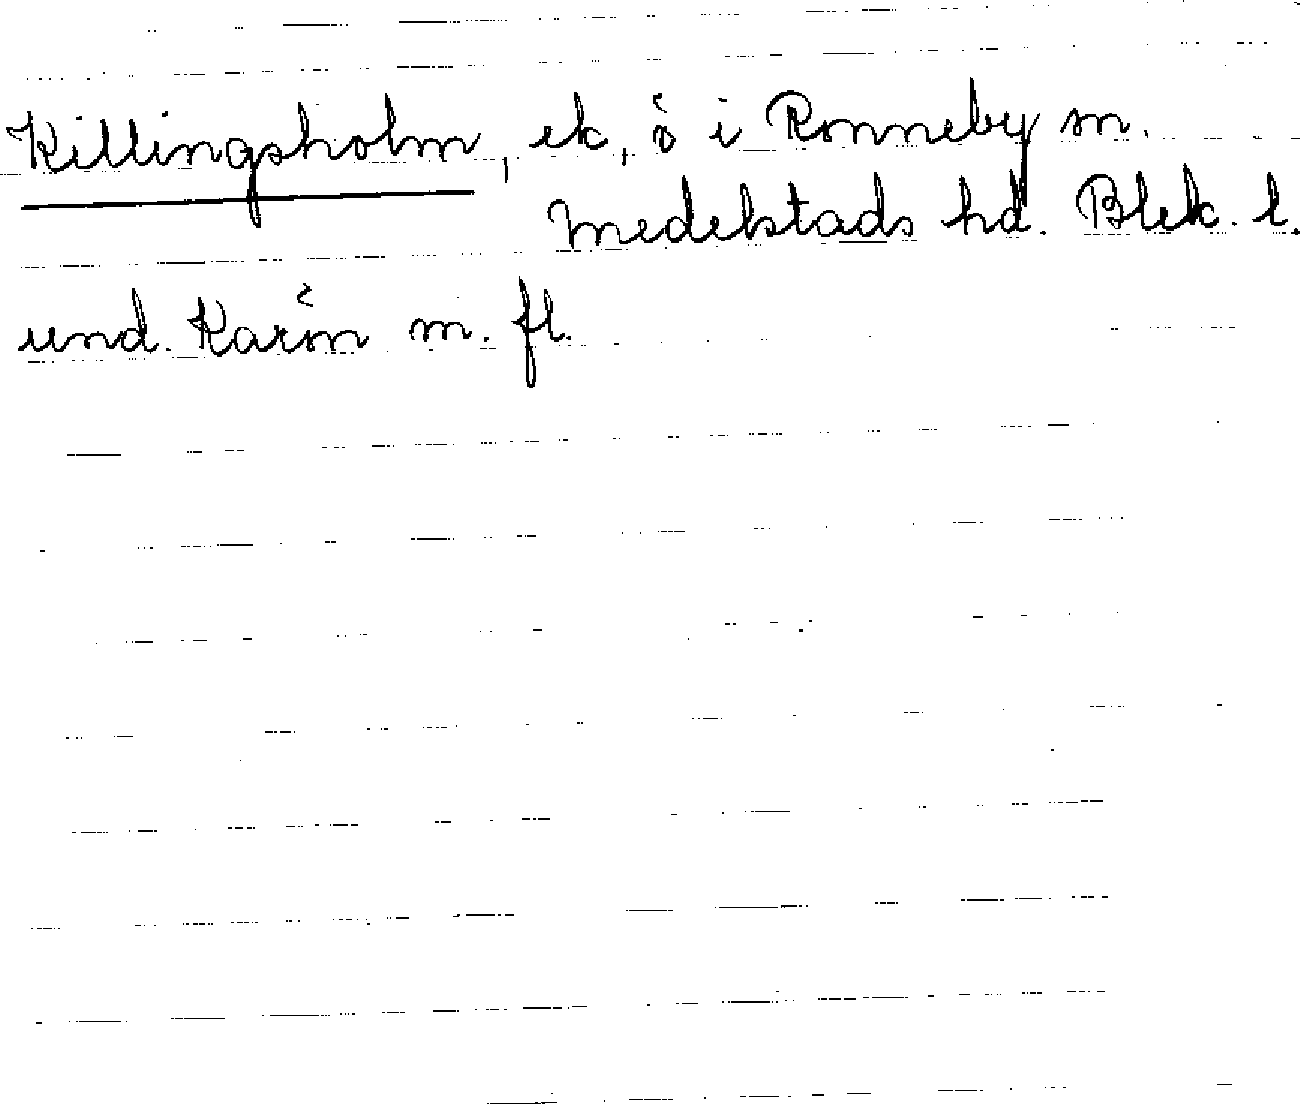 Killingsholm, ek, ö i Ronneby sn.
Medelstads hd. Blek. l.
und. Karön m. fl.